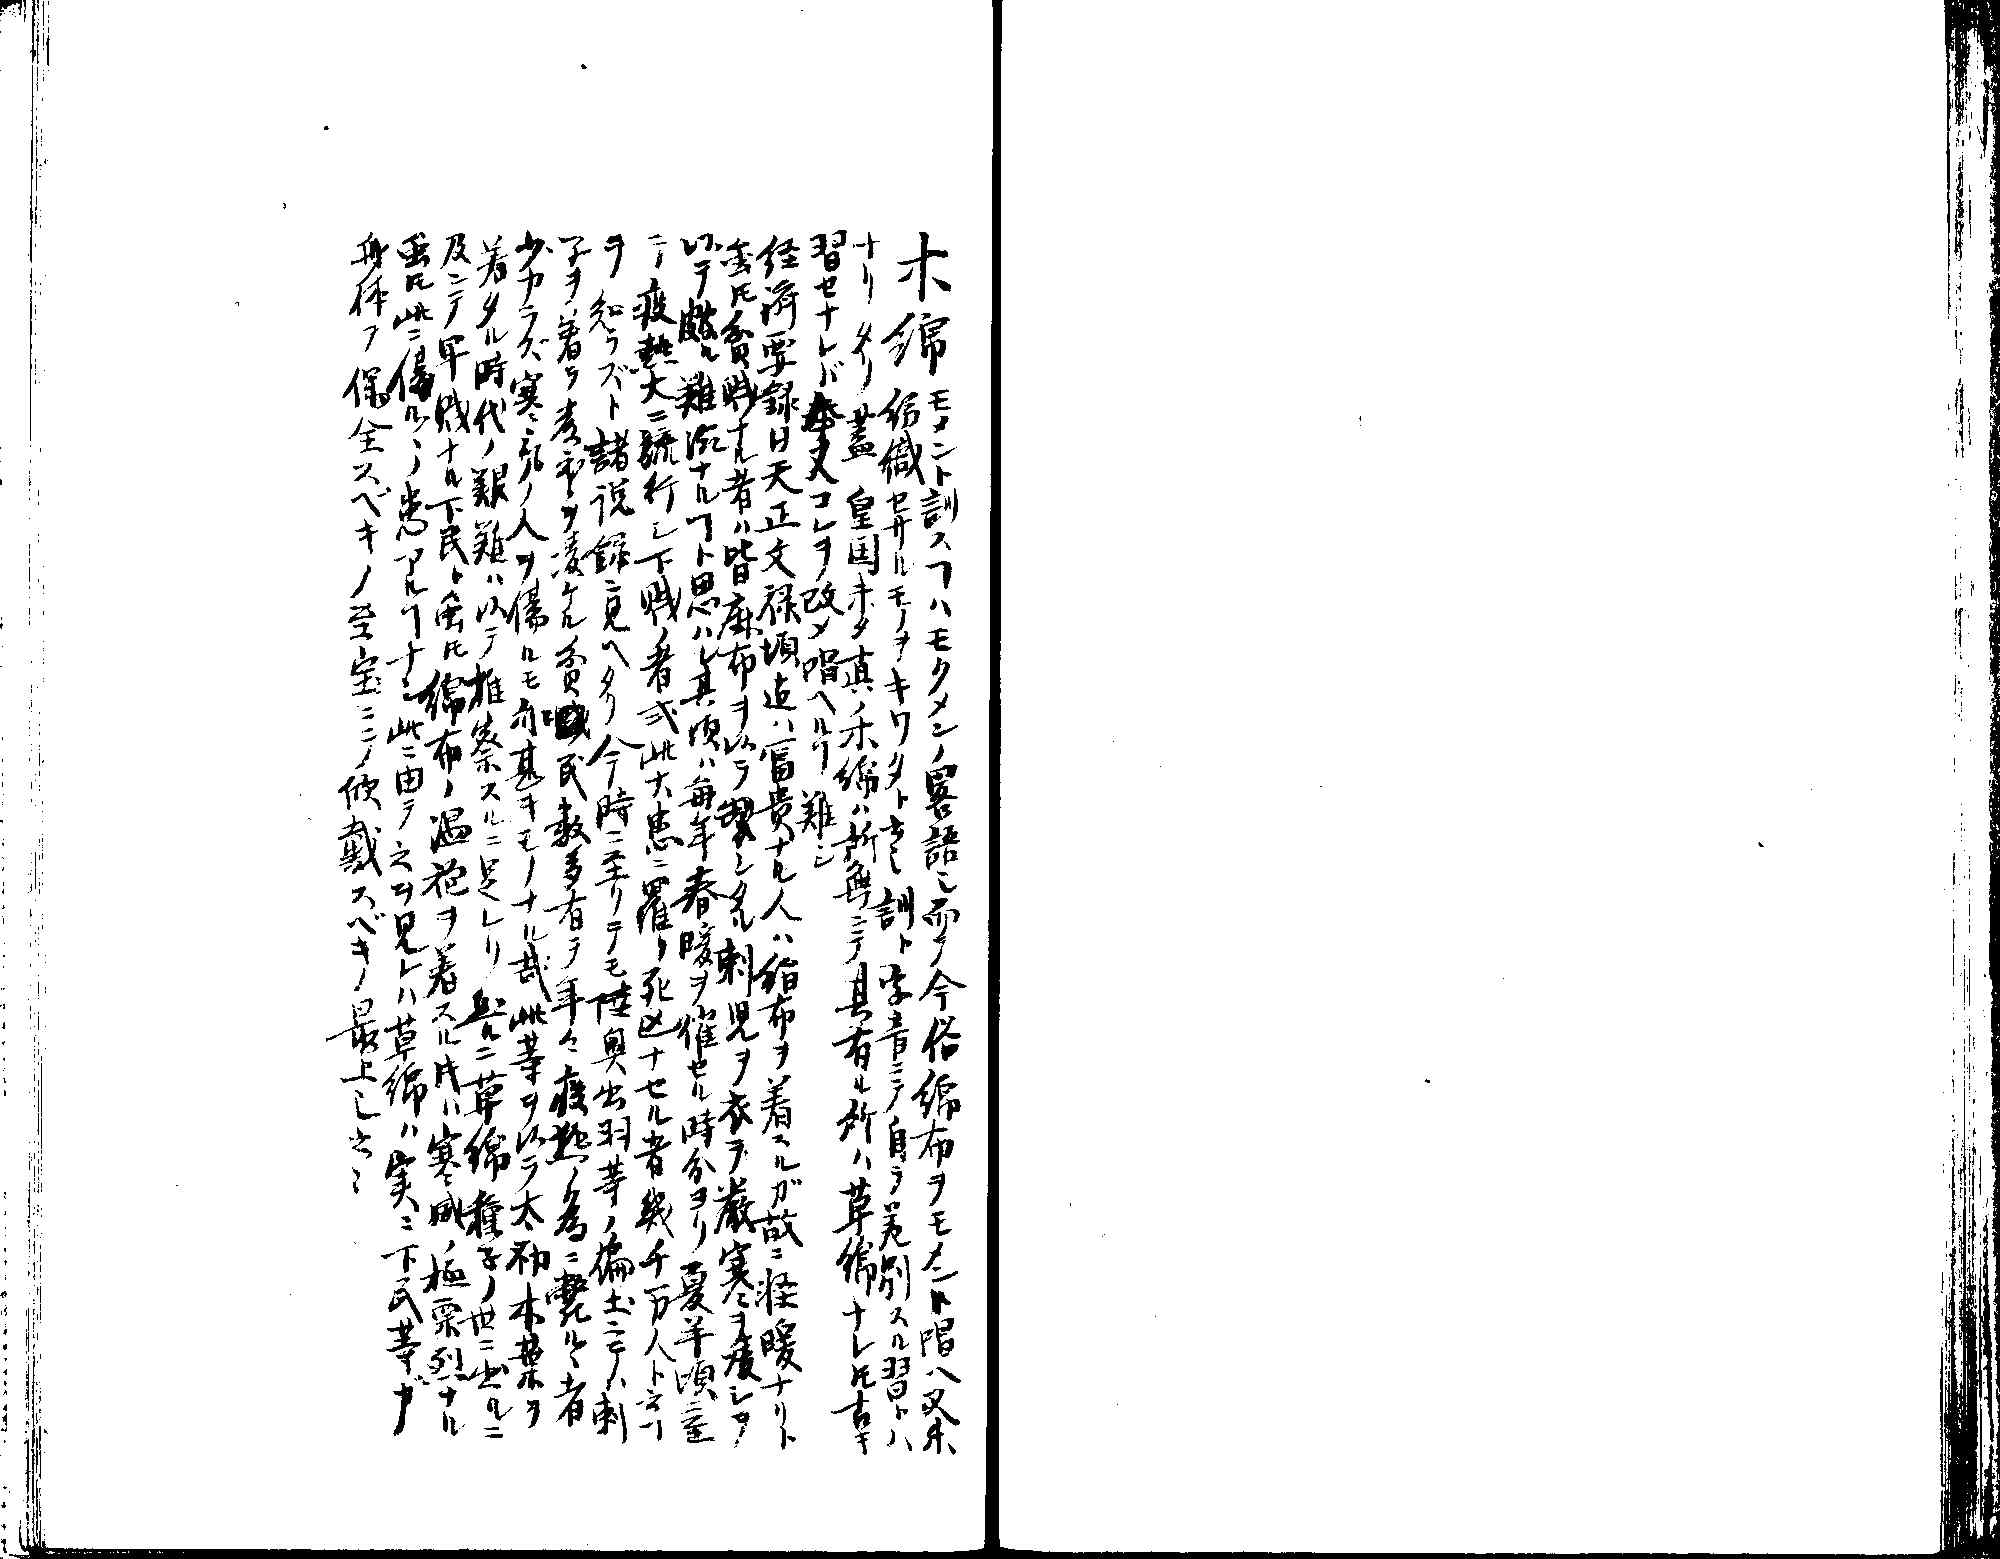 木綿 モメント訓スヿハモクメンノ畧語ニ而テ今俗綿布ヲモメント唱ハ又未
紡織セザルモノヲキワタト云訓ト字音ニテ自ラ差別スル習トハ
ナリ タリ 蓋 皇国未タ真ノ木綿ハ所無ニテ其有ル所ハ草綿ナレ𪜈古キ
習セナレバ又コレヲ改メ唱ヘルヿ難シ
経済要録曰天正文禄頃迄ハ富貴ナル人ハ絹布ヲ着スルガ故ニ軽暖ナリト
雖𪜈貧賎ナル者ハ皆麻布ヲ以テ製シタル刺児ヲ衣ヲ厳寒ヲ凌シヲ
以テ頗ル難渋ナルヿト思ハレ其頃ハ毎年春暖ヲ催セル時分ヨリ夏半頃ニ至
ニテ疫熱大ニ流行シ下賎ノ者 此大患ニ罹リ死亡ナセル者幾千万人ト云ヿ
ヲ知ラズト諸説録ニ見ヘタリ今時ニ至リテモ陸奥出羽等ノ偏土ニテハ刺
子ヲ着テ 寒ヲ凌ケル貧賎民数多有テ年々疫熱ノ為ニ斃ルヽ者
少カラズ寒気ノ人ヲ傷ルモ亦甚キモノナル哉此等ヲ以テ太初木葉ヲ
着タル時代ノ艱難ハ以テ推察スルニ足レリ 然ルニ草綿種子ノ世ニ出ルニ
及ンテ卑賎ナル下民ト雖𪜈綿布ノ温袍ヲ着スル時ハ寒威ノ極栗烈ナル
雖𪜈此ニ傷ルヽノ患アルヿナシ此ニ由テ之ヲ見レハ草綿ハ実ニ下民等ガ
身体ヲ保全スベキノ至宝ニシテ欣戴スベキノ最上也云々